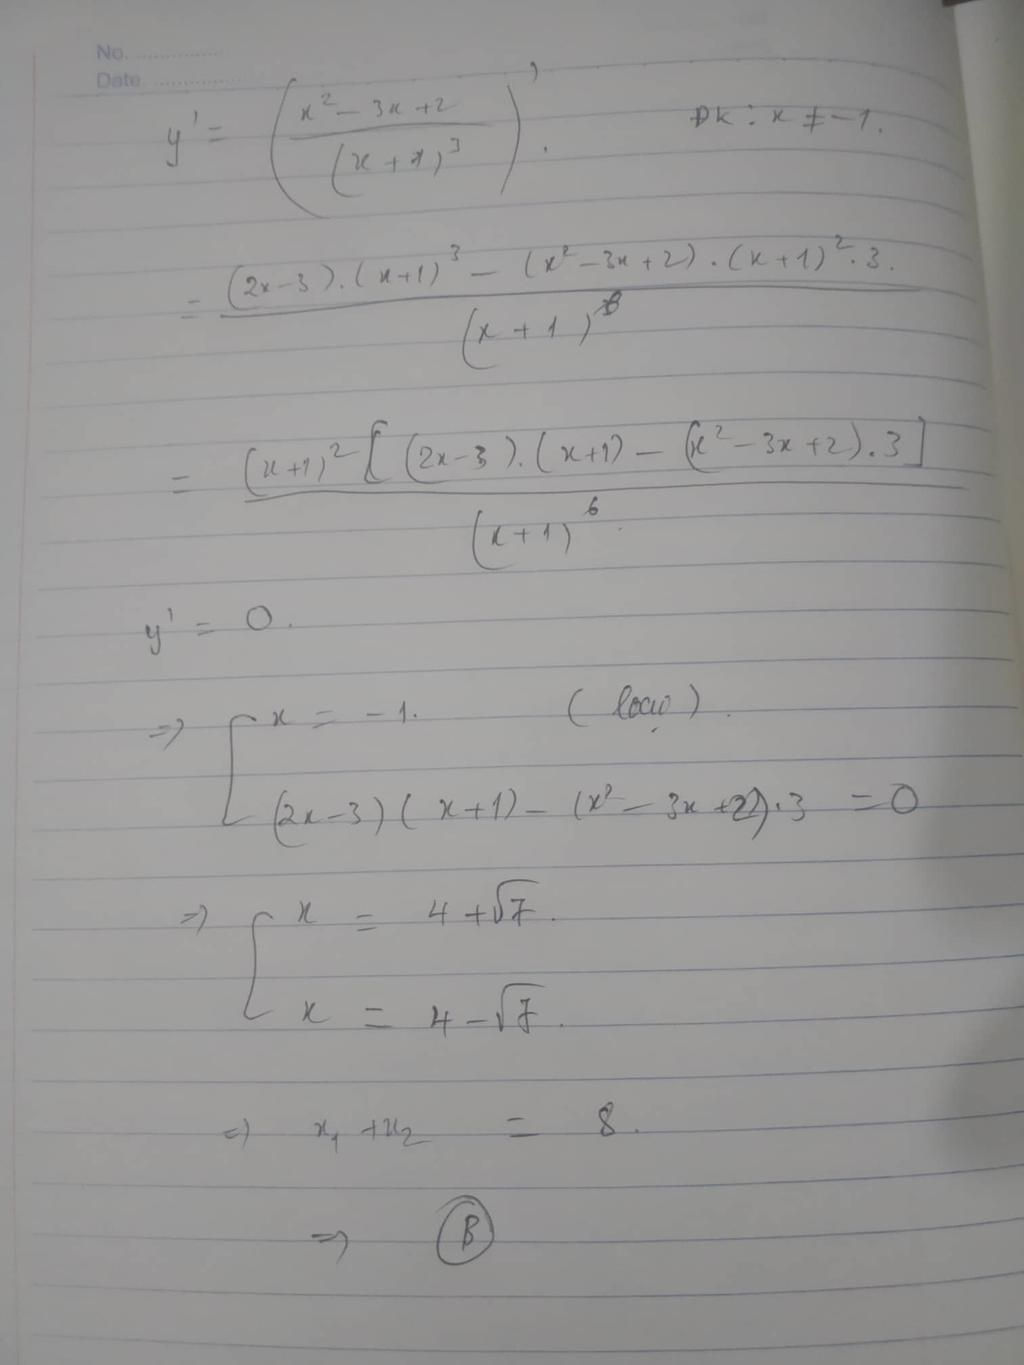 No. ..............
Date ..................
y' = ( (x² - 3x + 2) / (x + 1)³ )' . ĐK : x ≠ -1.
= ((2x-3).(x+1)³ - (x² - 3x + 2).(x+1)².3.) / (x + 1)⁶
= ((x+1)² [ (2x-3).(x+1) - (x² - 3x + 2).3 ]) / (x+1)⁶
y' = 0.
=> [ x = -1. (loại).
(2x-3)(x+1) - (x² - 3x + 2).3 = 0
=> [ x = 4 + √7.
x = 4 - √7.
=> x₁ + x₂ = 8.
=> B